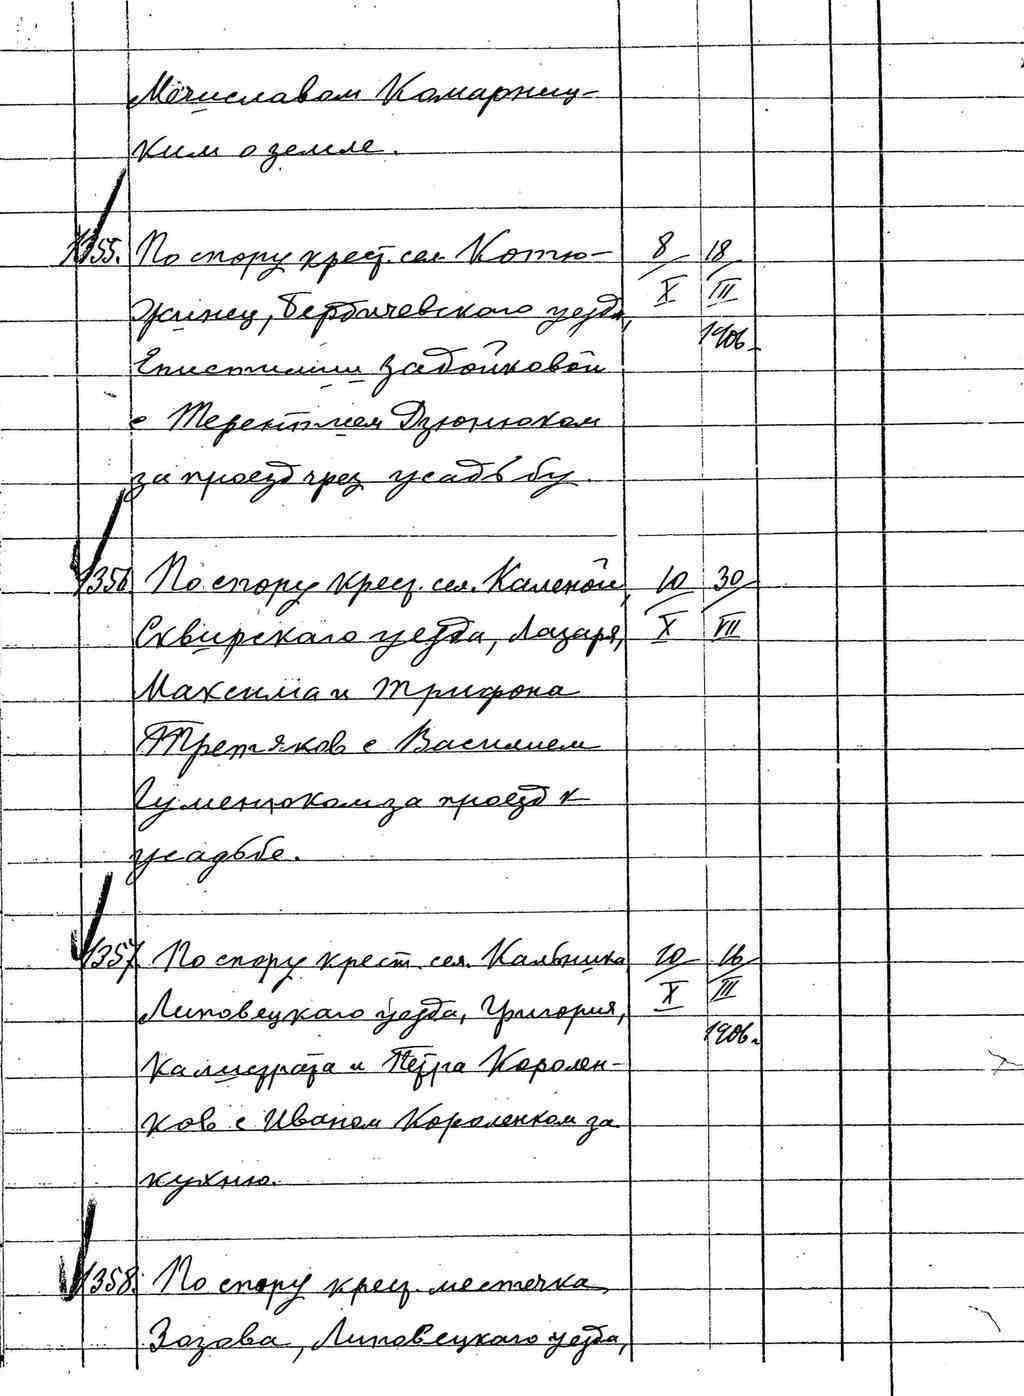 Мечиславом Комарниц-
ким о земле.
1355. По спору крест. сел. Котю-
жинец, Бердичевского уезда,
Епистимии Забойковой
с Терентием Дзюнюком
за проезд чрез усадьбу.
8/X 18/III 1906
1356 По спору крест. сел. Каленой,
Сквирскаго уезда, Лазаря,
Максима и Трифона
Третяков с Василием
Гуменюком за проезд к
усадьбе.
10/X 30/VII
1357 По спору крест. сел. Кальника
Липовецкаго уезда, Григория,
Калистрата и Петра Королен-
ков с Иваном Короленком за
кухню.
10/X 16/III 1906 г.
1358. По спору крест. местечка
Зозова, Липовецкаго уезда,